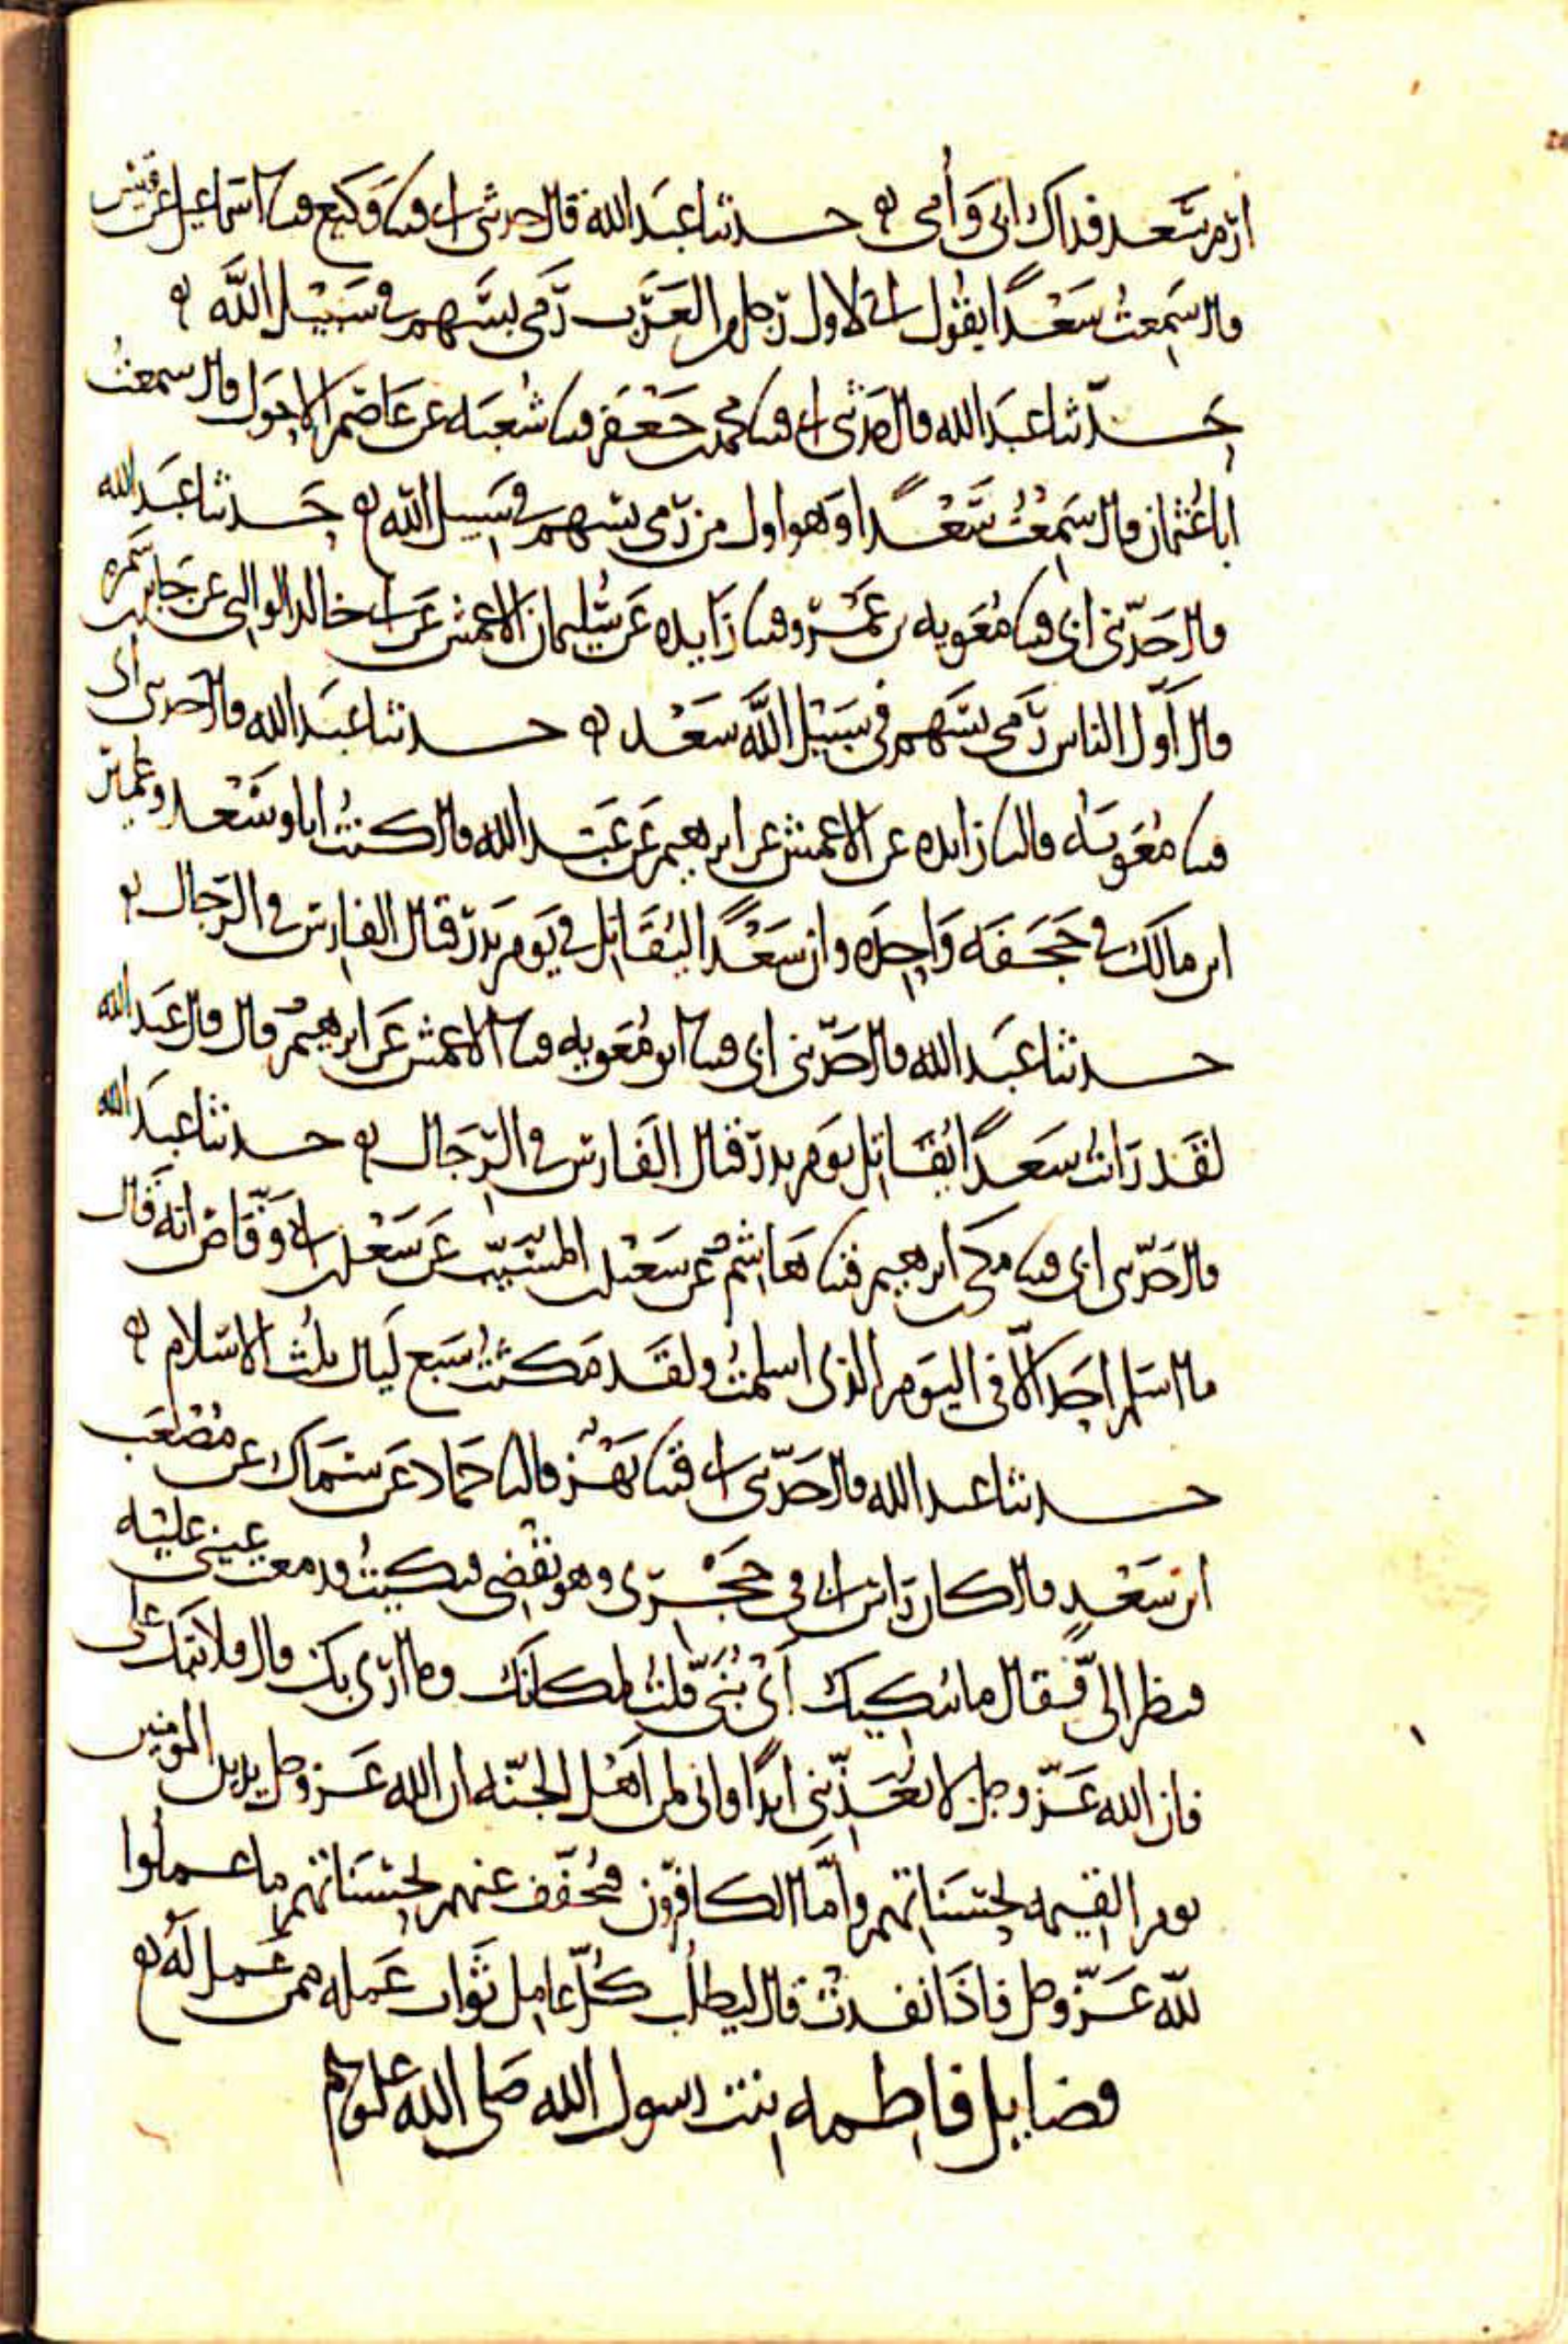 ارم سعد فداك ابى وامى ه حدثنا عبد الله قال حدثنى ابى قثنا وكيع قثنا اسماعيل عن قيس
قال سَمِعتُ سَعْدًا يقُول انى لاول رجل من العَرَب رَمى بسَهم فى سَبيْل الله ه
حدّثنا عبَد الله قال حدثنى ابى قثنا محمد بن جَعْفَر قثنا شُعبَه عن عَاصم الاحول قال سمعتُ
ابا عُثمان قال سَمِعْتُ سَعْدًا وَهو اول من رَمى بسهم فى سَبيل الله ه حَدثنا عبَد الله
قال حَدّثنى ابى قثنا مُعَويه بن عَمْرو قثنا زَايده عَن سُليمان الاعمش عَن ابى خالد الوالبى عن جَابر بن سَمره
قال أوّل الناس رَمى بسَهم فى سَبيْل الله سَعْد ه حدثنا عبَد الله قال حدثنى ابى
قثنا مُعَويَه قال نا زايده عن الاعمش عن ابرهيم عَن عَبد الله قال كنتُ انا وسَعْد وعمار
ابن مالك فى حَجَفَه وَاحِدَه وان سَعْدًا ليُقَاتل فى يَوم بَدر قتال الفارس فى الرّجال ه
حدثنا عبَد الله قال حدّثنى ابى قثنا ابو مُعَويه قثنا الاعمش عَن ابرهيم قال قال عبَد الله
لقَد رَايتُ سَعدًا يُقَاتِل يوَم بدر قتال الفَارس فى الرّجَال ه حدثنا عبَد الله
قال حَدّثنى ابى قثنا مكى بن ابرهيم قثنا هَاشمٌ عن سَعيْد بن المسَيّب عَن سَعْد بن ابى وَقّاص انه قَال
ما اسلم احَد الاّ فى اليَوم الذى اسلمتُ ولقَد مَكثتُ سَبع لَيال ثلث الاسلام ه
حدثنا عبد الله قال حَدّثنى ابى قثنا بَهْز قال نا حَمّاد عَن سمَاك عن مُصْعَب
ابن سَعْدٍ قال كان رَاس ابى فى حجْرى وهو يقضى فبكيتُ ودمعت عينى عليه
فنظر الىّ فقال ما يبكيك أى بُنَىّ قلتُ لمكانك وما ارى بك قال فلا تبك على
فان الله عَزّ وجل لا يعَذّبنى ابدًا وانى لمن اهْل الجنّه ان الله عَز وجل يدين المومنين
يوم القيمه بحسَناتهم وأمّا الكافرون فيُخفّف عنهم بحسَناتهم ما عملُوا
لله عَزّ وجل فاذَا نفدتْ قال ليطلُب كُلّ عامِل ثَواب عَمله ممن عَمل لَهُ ه
فضايل فاطمه بنت رسول الله صلى الله عليه وسلم